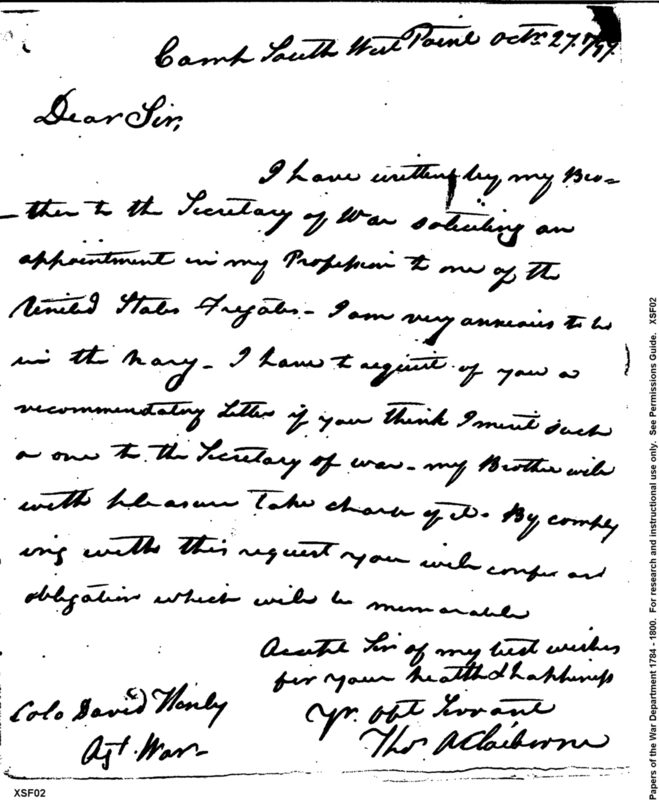 Camp South West Point Octr. 27. 1797.
Dear Sir,
I have written by my Bro=
ther to the Secretary of War soliciting an
appointment in my Profession to one of the
United States Fregates - I am very anxious to be
in the Navy - I have to request of you a
recommendatory Letter if you think I merit such
a one to the Secretary of war - my Brother will
with pleasure take charge of it. By comply
ing with this request you will confer an
obligation which will be memorable
Accept Sir of my best wishes
for your health & happiness
Yr. obt Servant
Thos. A Claiborne
Colo. David Henly
Agt. War -
XSF02
Papers of the War Department 1784 - 1800. For research and instructional use only. See Permissions Guide. XSF02